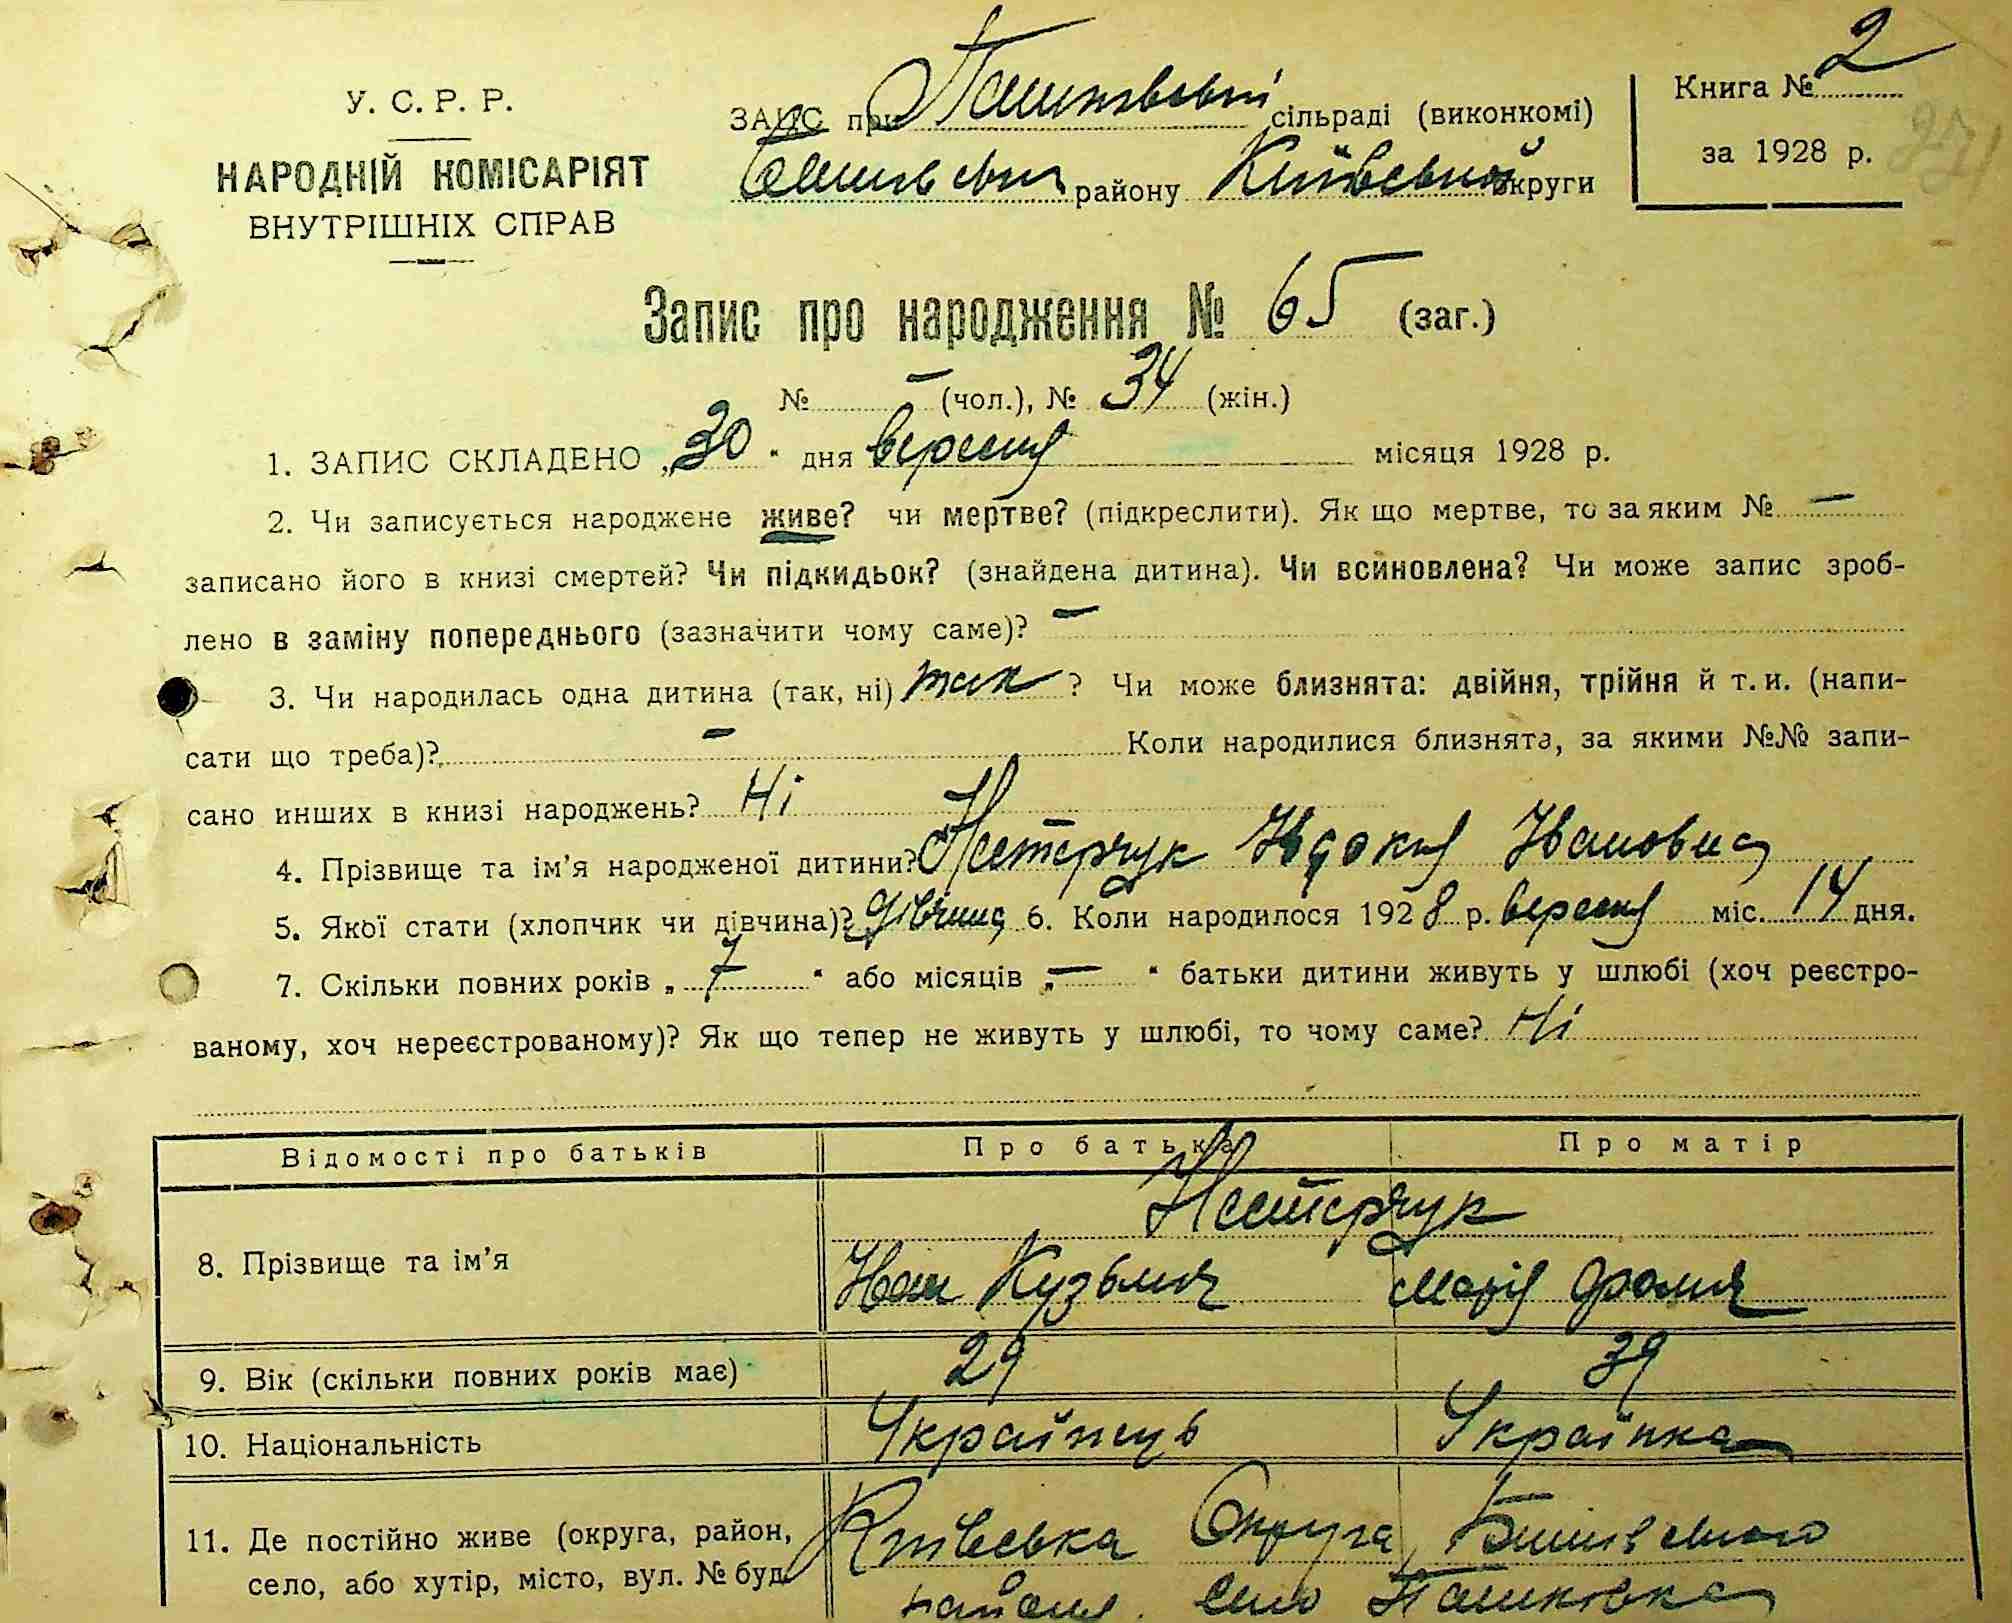 У. С. Р. Р.
НАРОДНІЙ КОМІСАРІЯТ
ВНУТРІШНІХ СПРАВ
ЗАПИС при Пашківській сільраді (виконкомі)
Бишівського району Київської округи
Книга № 2
за 1928 р.
271
Запис про народження № 65 (заг.)
№ — (чол.), № 34 (жін.)
1. ЗАПИС СКЛАДЕНО „30“ дня вересня місяця 1928 р.
2. Чи записується народжене живе? чи мертве? (підкреслити). Як що мертве, то за яким № —
записано його в книзі смертей? Чи підкидьок? (знайдена дитина). Чи всиновлена? Чи може запис зроб-
лено в заміну попереднього (зазначити чому саме)? —
3. Чи народилась одна дитина (так, ні) так ? Чи може близнята: двійня, трійня й т. и. (напи-
сати що треба)? — Коли народилися близнята, за якими №№ запи-
сано инших в книзі народжень? Ні
4. Прізвище та ім’я народженої дитини? Нестерчук Явдокия Івановна
5. Якої стати (хлопчик чи дівчина)? дівчина 6. Коли народилося 1928 р. вересня міс. 14 дня.
7. Скільки повних років „ 7 “ або місяців „ — “ батьки дитини живуть у шлюбі (хоч реєстро-
ваному, хоч нереєстрованому)? Як що тепер не живуть у шлюбі, то чому саме? Ні
Відомості про батьків Про батька Про матір
8. Прізвище та ім’я Нестерчук
Іван Кузьмич Марія
9. Вік (скільки повних років має) 29 39
10. Національність Українець Українка
11. Де постійно живе (округа, район, Київська Округа Бишівського
село, або хутір, місто, вул. № буд. району. село Пашківка